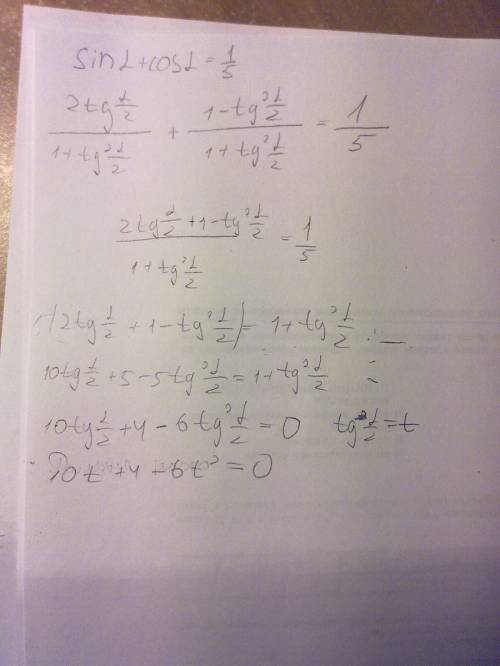 sinα+cosα=1/5
2tg α/2 / 1+tg² α/2 + 1-tg² α/2 / 1+tg² α/2 = 1/5
2tg α/2 +1-tg² α/2 / 1+tg² α/2 = 1/5
(2tg α/2 + 1-tg² α/2) = 1+tg² α/2
10tg α/2 +5-5tg² α/2 = 1+tg² α/2
10tg α/2 +4-6tg² α/2 = 0 tg α/2 = t
10t+4-6t²=0